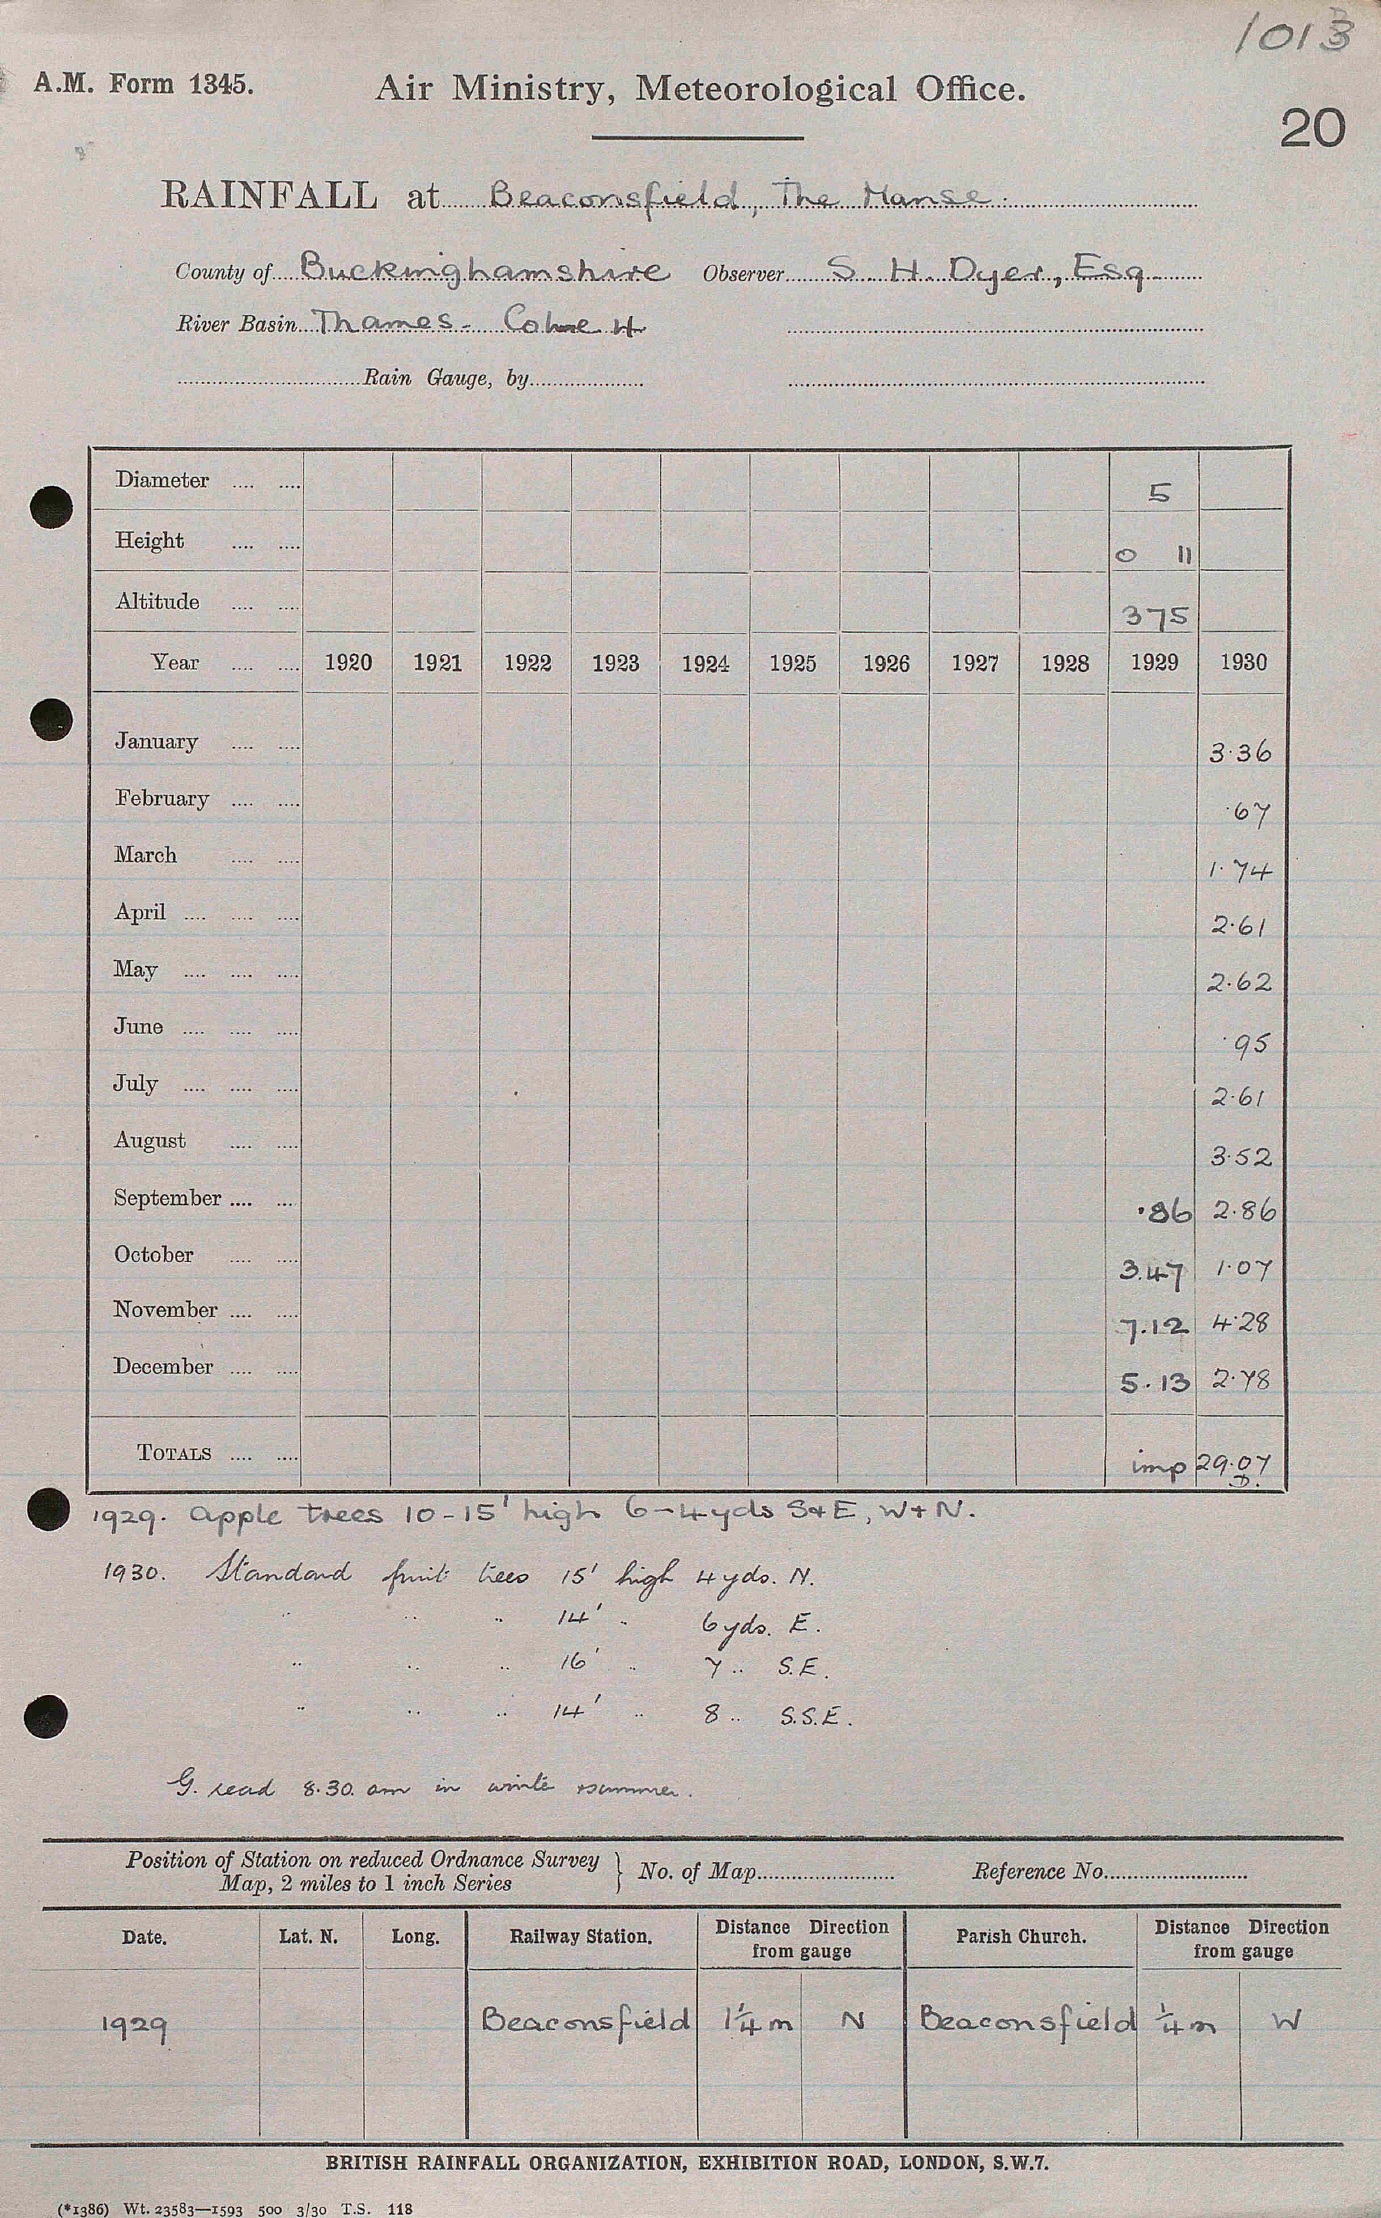 1013
A.M. Form 1345. Air Ministry, Meteorological Office.
20
RAINFALL at Beaconsfield, The Manse.
County of Buckinghamshire Observer S. H. Dyer, Esq
River Basin Thames - Colne 4
Rain Gauge, by
Diameter 5
Height 0 11
Altitude 375
Year 1920 1921 1922 1923 1924 1925 1926 1927 1928 1929 1930
January 3.36
February .67
March 1.74
April 2.61
May 2.62
June .95
July 2.61
August 3.52
September .86 2.86
October 3.47 1.07
November 7.12 4.28
December 5.13 2.78
TOTALS imp 29.07
D.
1929. apple trees 10-15' high 6-4yds S+E, W+N.
1930. Standard fruit trees 15' high 4 yds. N.
" " " 14' " 6 yds. E.
" " " 16' " 7 " S.E.
" " " 14' " 8 " S.S.E.
G. read 8.30. am in winter + summer.
Position of Station on reduced Ordnance Survey Map, 2 miles to 1 inch Series } No. of Map Reference No.
Date. Lat. N. Long. Railway Station. Distance Direction from gauge Parish Church. Distance Direction from gauge
1929 Beaconsfield 1¼ m N Beaconsfield ¼ m W
BRITISH RAINFALL ORGANIZATION, EXHIBITION ROAD, LONDON, S.W.7.
(*1386) Wt. 23583—1593 500 3/30 T.S. 118